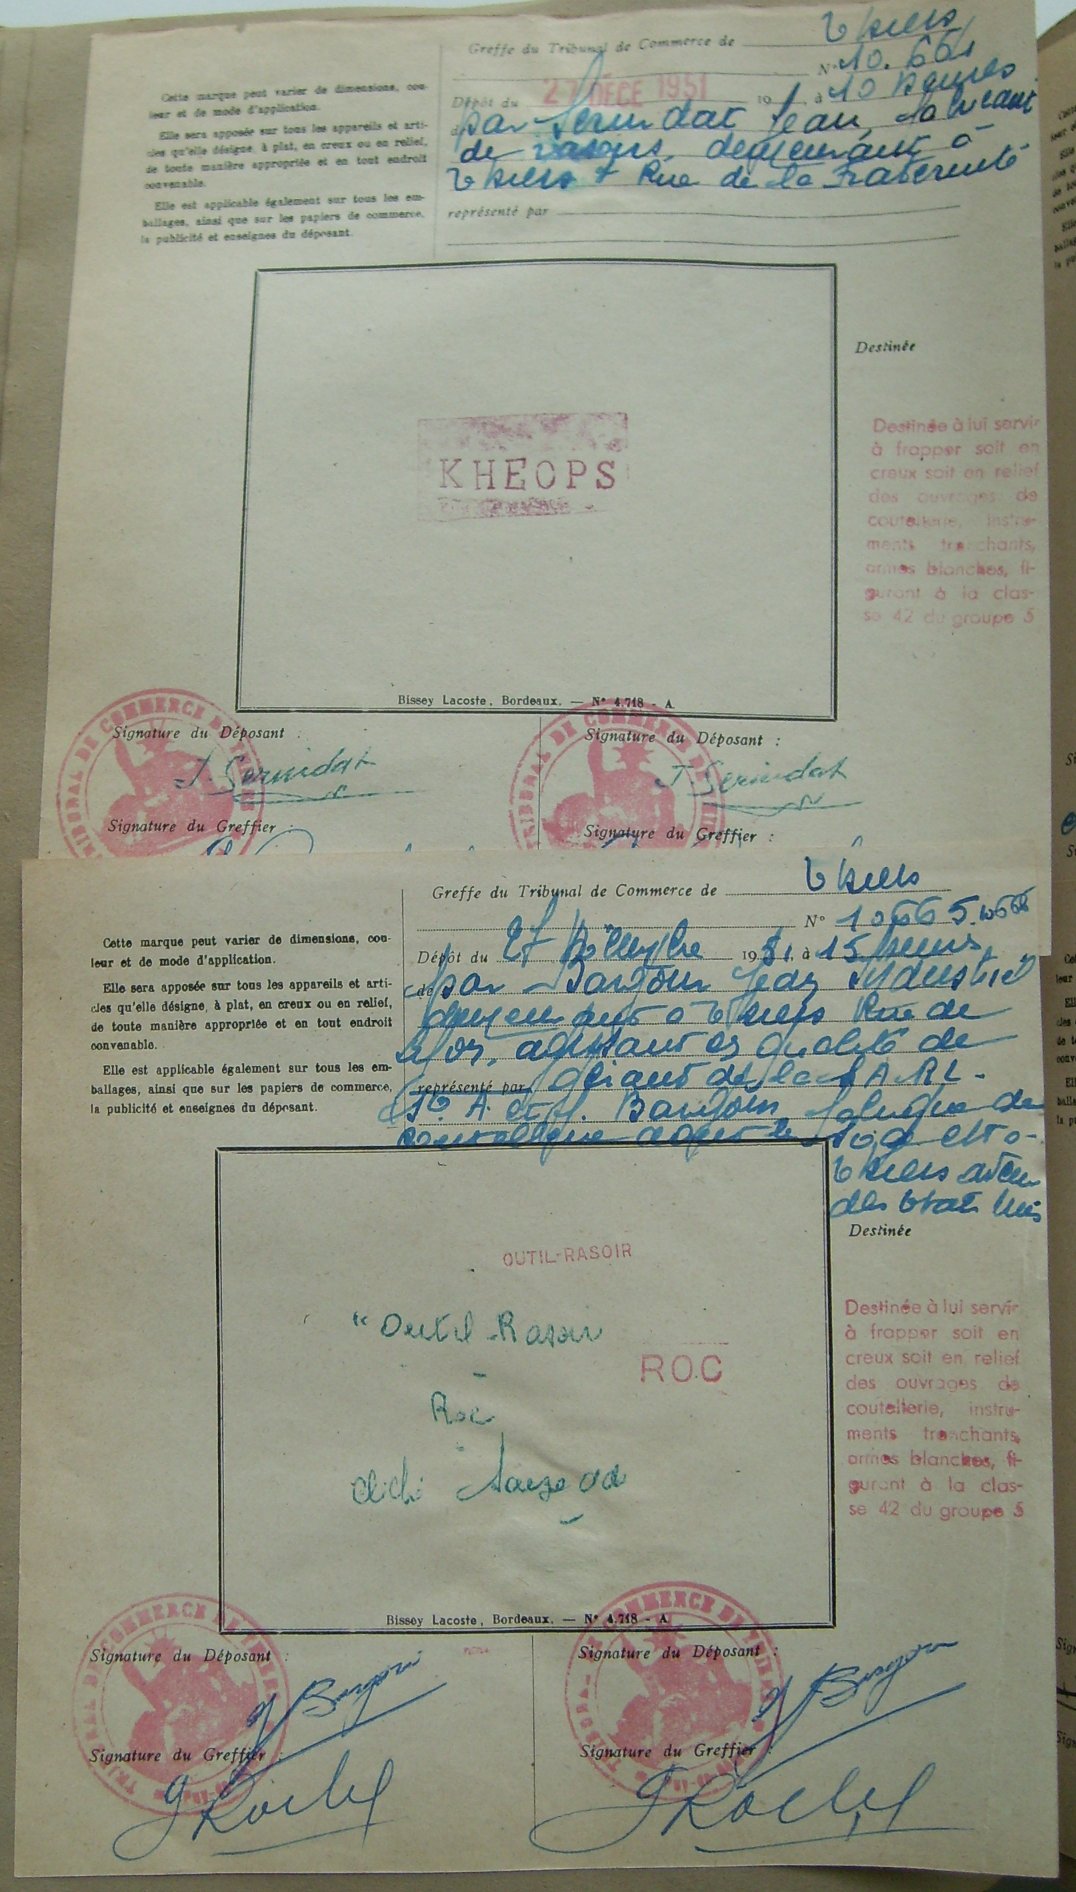 Greffe du Tribunal de Commerce de Thiers
N° 10.664
Dépôt du 27 DECE 1951 19 à 10 heures
par Serindat Jean, fabricant
de rasoirs, demeurant à
Thiers Rue de la Fraternité
représenté par
Cette marque peut varier de dimensions, cou-
leur et de mode d'application.
Elle sera apposée sur tous les appareils et arti-
cles qu'elle désigne, à plat, en creux ou en relief,
de toute manière appropriée et en tout endroit
convenable.
Elle est applicable également sur tous les em-
ballages, ainsi que sur les papiers de commerce,
la publicité et enseignes du déposant.
KHEOPS
Destinée
Destinée à lui servir
à frapper soit en
creux soit en relief
des ouvrages de
coutellerie, instru-
ments tranchants,
armes blanches, fi-
gurant à la clas-
se 42 du groupe 5
Bissey Lacoste, Bordeaux. — N° 4.718 - A
Signature du Déposant :
J. Serindat
Signature du Greffier :
Signature du Déposant :
J. Serindat
Signature du Greffier :
TRIBUNAL DE COMMERCE DE THIERS
Greffe du Tribunal de Commerce de Thiers
N° 10665.10666
Dépôt du 27 Décembre 1951 à 15 heures
par Jean Industriel
demeurant à Thiers Rue de
agissant es qualité de
représenté par gérant de la S.A.R.L.
A. et J. fabrique de
Thiers avenue
des Etats Unis
Cette marque peut varier de dimensions, cou-
leur et de mode d'application.
Elle sera apposée sur tous les appareils et arti-
cles qu'elle désigne, à plat, en creux ou en relief,
de toute manière appropriée et en tout endroit
convenable.
Elle est applicable également sur tous les em-
ballages, ainsi que sur les papiers de commerce,
la publicité et enseignes du déposant.
OUTIL-RASOIR
"Outil-Rasoir
ROC
Roc
cliché
Destinée
Destinée à lui servir
à frapper soit en
creux soit en relief
des ouvrages de
coutellerie, instru-
ments tranchants,
armes blanches, fi-
gurant à la clas-
se 42 du groupe 5
Bissey Lacoste, Bordeaux. — N° 4.718 - A
Signature du Déposant :
Signature du Greffier :
Signature du Déposant :
Signature du Greffier :
TRIBUNAL DE COMMERCE DE THIERS